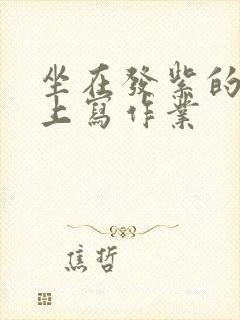 坐在發紫的
上寫作業
焦哲